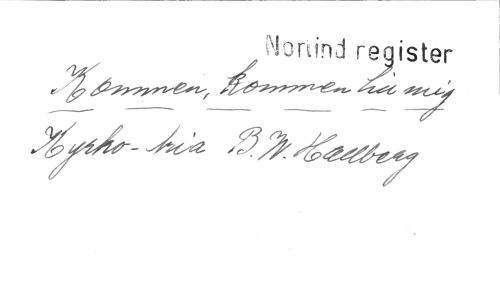 Norlind register
Kommen, kommen till mig
Kyrko-aria B. W. Hallberg